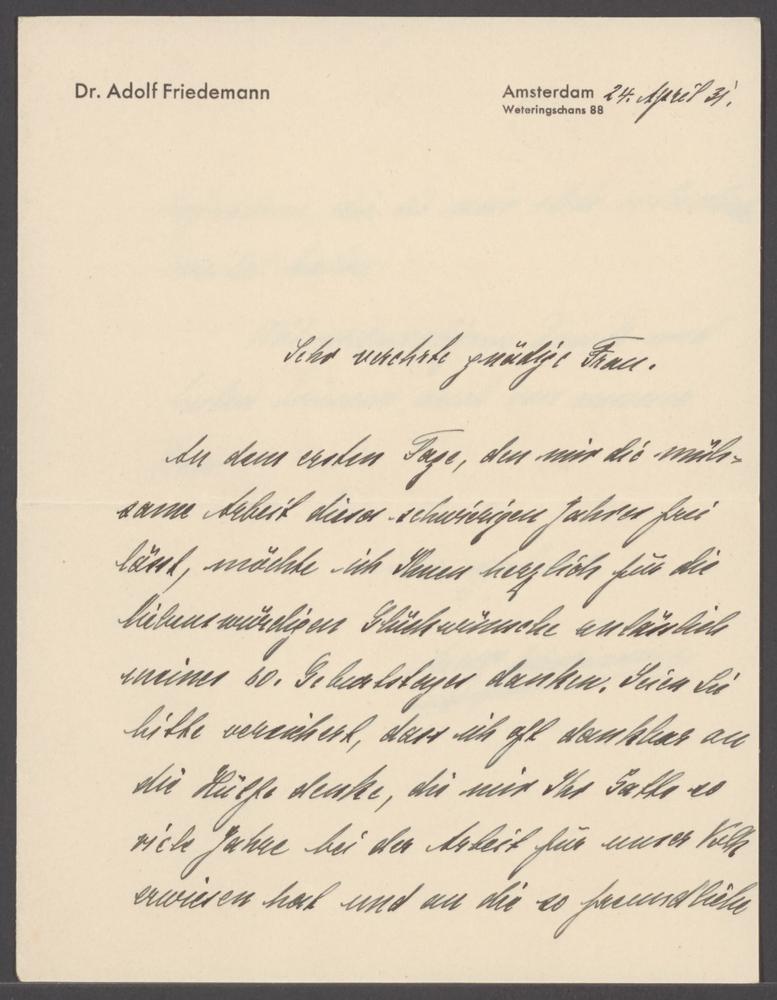 Dr. Adolf Friedemann
Amsterdam 24. April 31.
Weteringschans 88
Sehr verehrte gnädige Frau.
An dem ersten Tage, den mir die müh-
same Arbeit dieses schwierigen Jahres frei
lässt, möchte ich Ihnen herzlich für die
liebenswürdigen Glückwünsche anlässlich
meines 60. Geburtstages danken. Seien Sie
bitte versichert, dass ich oft dankbar an
die Hülfe denke, die mir Ihr Gatte so
viele Jahre bei der Arbeit für unser Volk
erwiesen hat und an die so freundliche